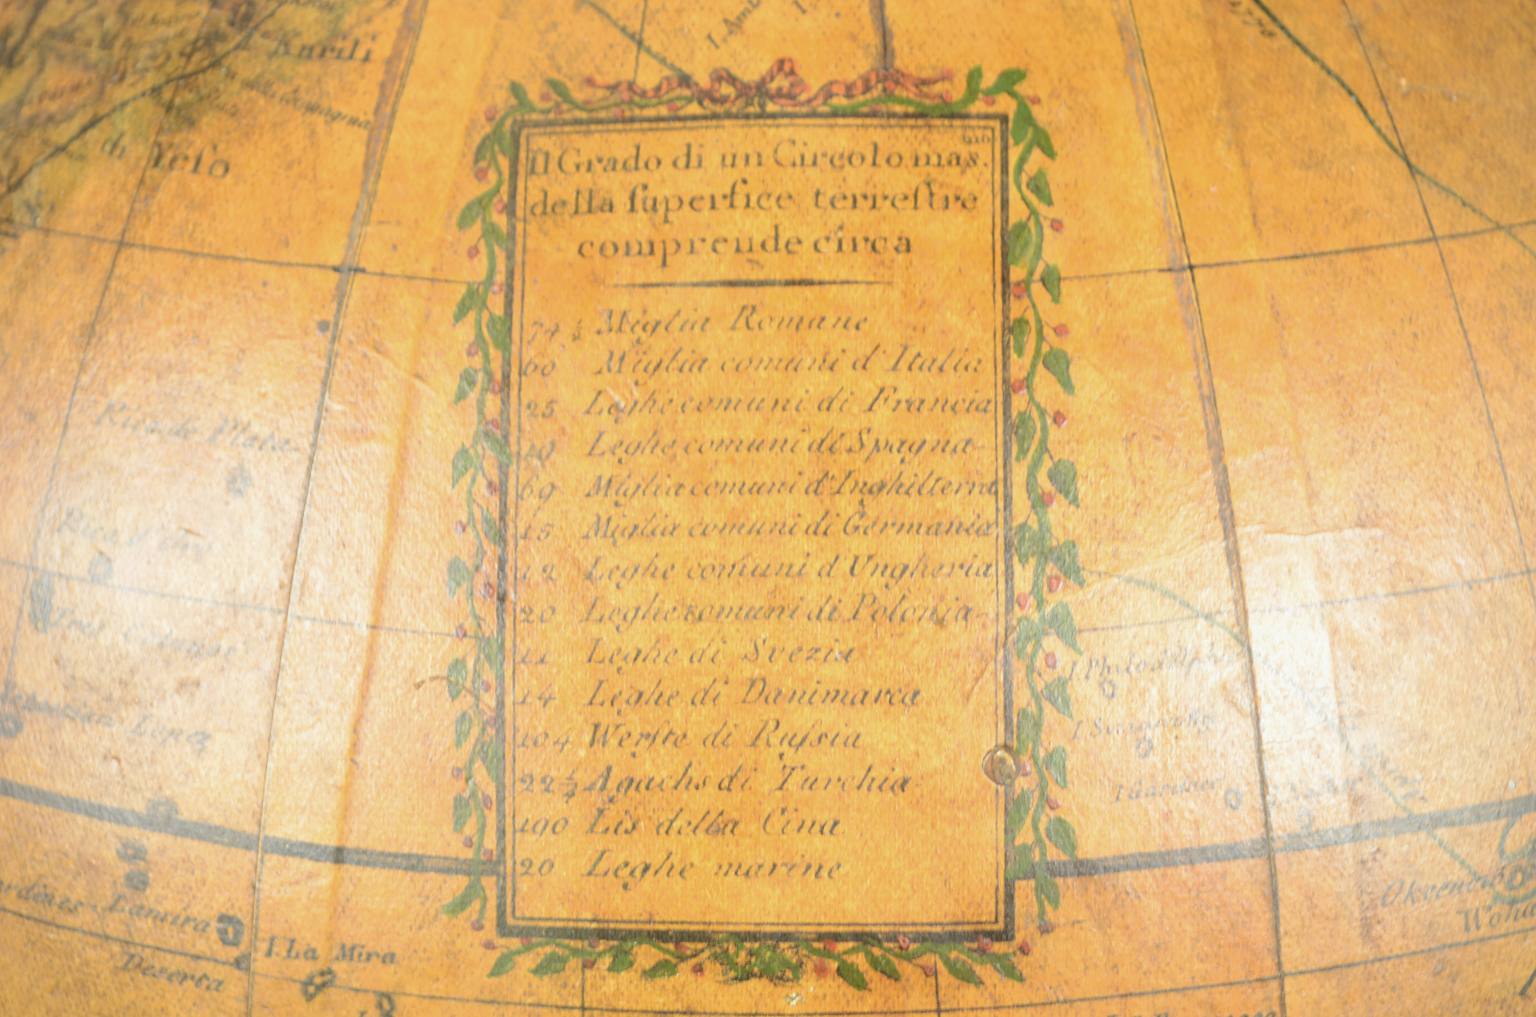 Kurili
di Yeſo
1776
Il Grado di un Circolo mas.ᵐᵒ
della ſuperfice terreſtre
comprende circa
74 ½ Miglia Romane
60 Miglia comuni d'Italia
25 Leghe comuni di Francia
19 Leghe comuni di Spagna
69 Miglia comuni d'Inghilterra
15 Miglia comuni di Germania
12 Leghe comuni d'Ungheria
20 Leghe comuni di Polonia
11 Leghe di Svezia
14 Leghe di Danimarca
104 Werſte di Ruſsia
22 ½ Agachs di Turchia
190 Lis della Cina
20 Leghe marine
Rica de Plata
Lopez
Lamira
Deserta
I. La Mira
I Gardner